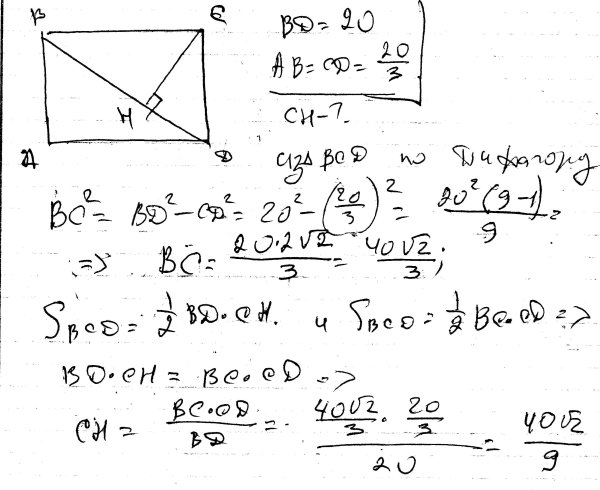 B C
BD = 20
AB = CD = 20/3
H
CH - ?
A D
из Δ BCD по Пифагору
BC² = BD² - CD² = 20² - (20/3)² = 20²(9-1)/9 =
=> BC = 20·2√2/3 = 40√2/3;
S_BCD = 1/2 BD·CH. и S_BCD = 1/2 BC·CD =>
BD·CH = BC·CD =>
CH = BC·CD/BD = (40√2/3 · 20/3)/20 = 40√2/9